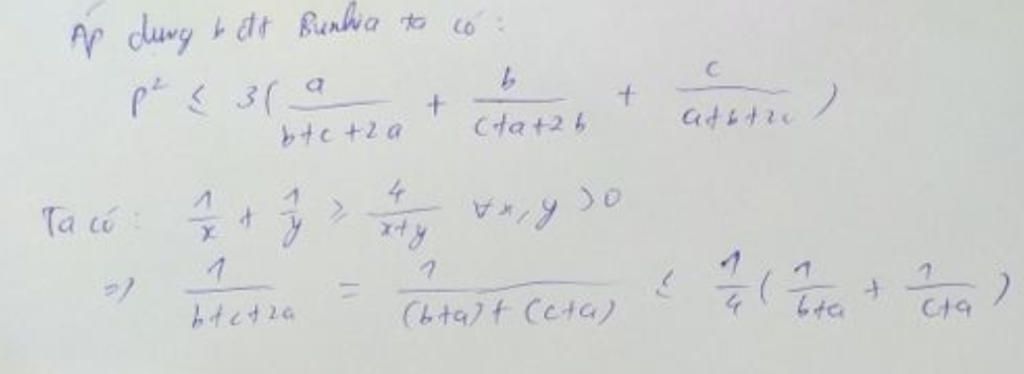 Áp dụng bđt Bunhia ta có:
P² ≤ 3( a/(b+c+2a) + b/(c+a+2b) + c/(a+b+2c) )
Ta có: 1/x + 1/y ≥ 4/(x+y) ∀x,y >0
=> 1/(b+c+2a) = 1/((b+a)+(c+a)) ≤ 1/4( 1/(b+a) + 1/(c+a) )